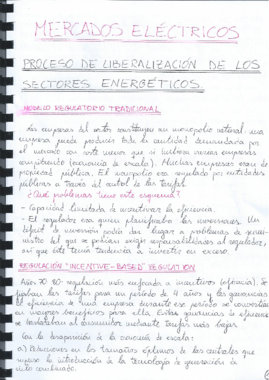 MERCADOS ELÉCTRICOS
PROCESO DE LIBERALIZACIÓN DE LOS
SECTORES ENERGÉTICOS
MODELO REGULATORIO TRADICIONAL
- Las empresas del sector constituyen un monopolio natural: una
empresa puede producir toda la cantidad demandada por
el mercado con este menor que si hubiera varias empresas
compitiendo (economía de escala). Muchas empresas eran de
propiedad pública. El monopolio era regulado por entidades
públicas a través del control de las tarifas.
¿Qué problemas tiene este esquema?
- Capacidad limitada de incentivar la eficiencia.
- El regulador era quien planificaba las inversiones. Un
déficit de inversión podía dar lugar a problemas de sumi-
nistro del que se pedían responsabilidades al regulador,
así que éste tenía tendencia a invertir en exceso.
REGULACIÓN "INCENTIVE-BASED REGULATION"
Años 70-80: regulación más enfocada a incentivos (eficiencia). Se
fijaban las tarifas para un período de 4 años y las ganancias
de eficiencia de una empresa durante ese período se convertían
en mayores beneficios para ella. Estas ganancias de eficiencia
se trasladaban al consumidor mediante tarifas más bajas.
Con la desaparición de la economía de escala:
a) Reducciones en los tamaños óptimos de las centrales que
supuso la introducción de la tecnología de generación de
ciclo combinado.